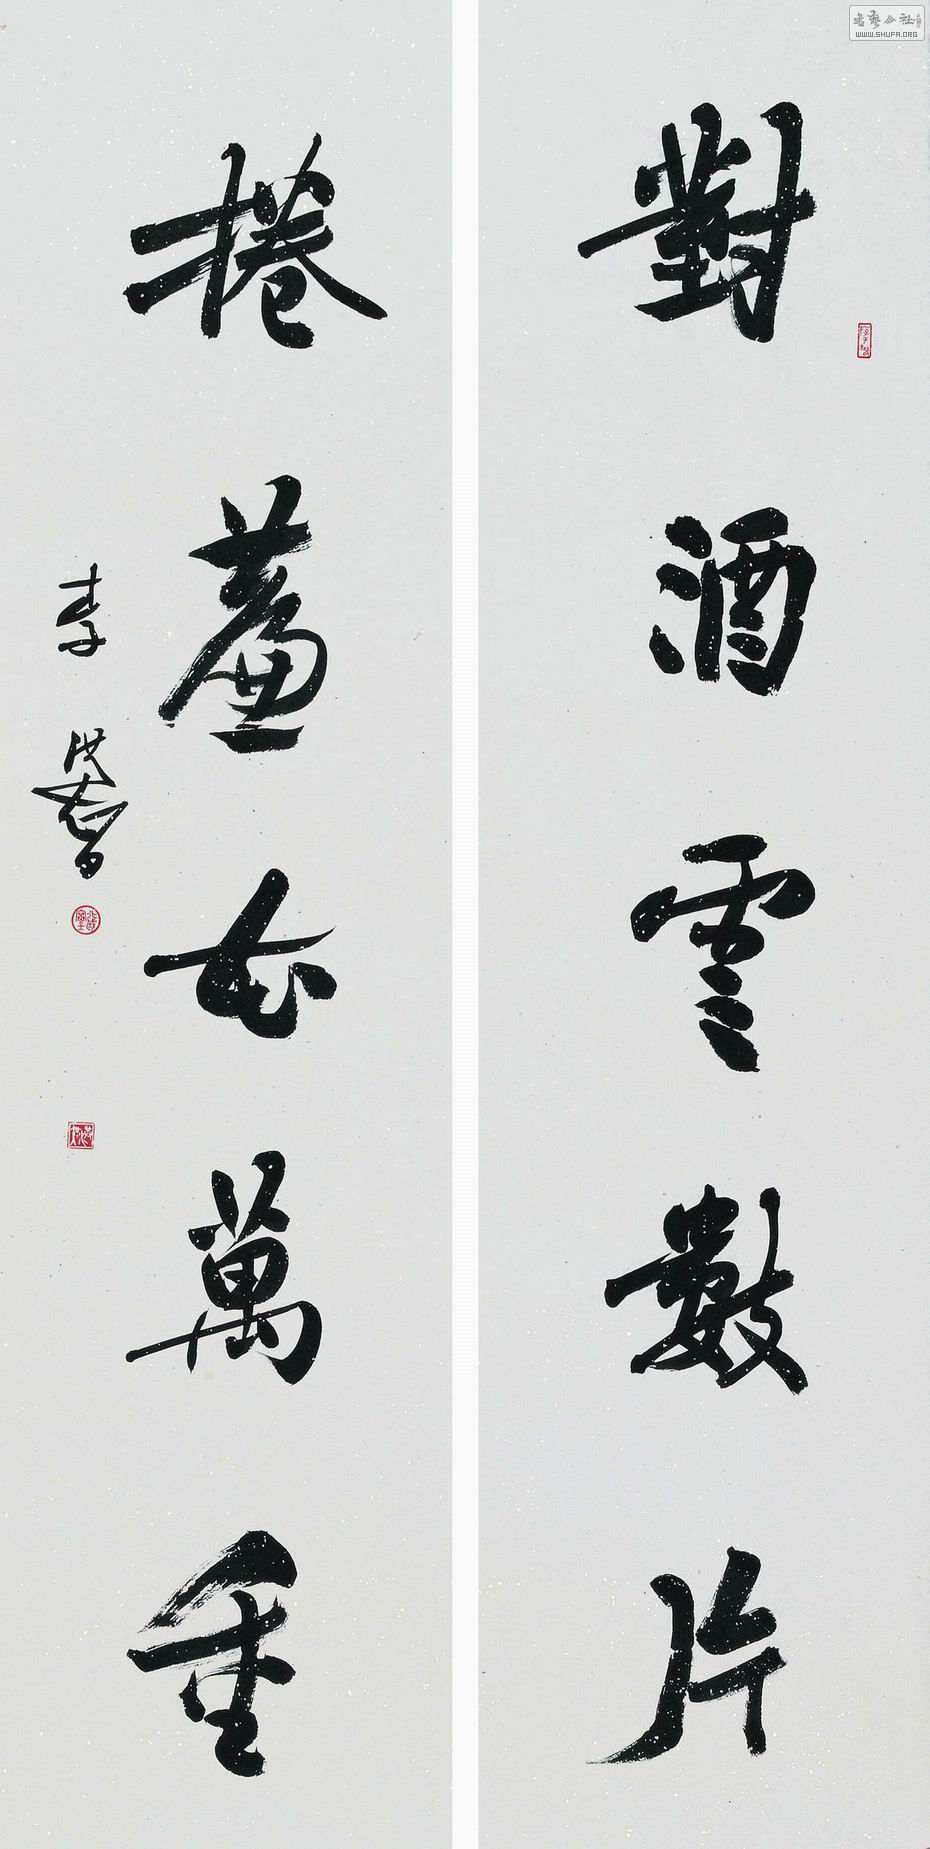 對酒雲數片
捲簾花萬重
李洪智
書藝公社
WWW.SHUFA.ORG